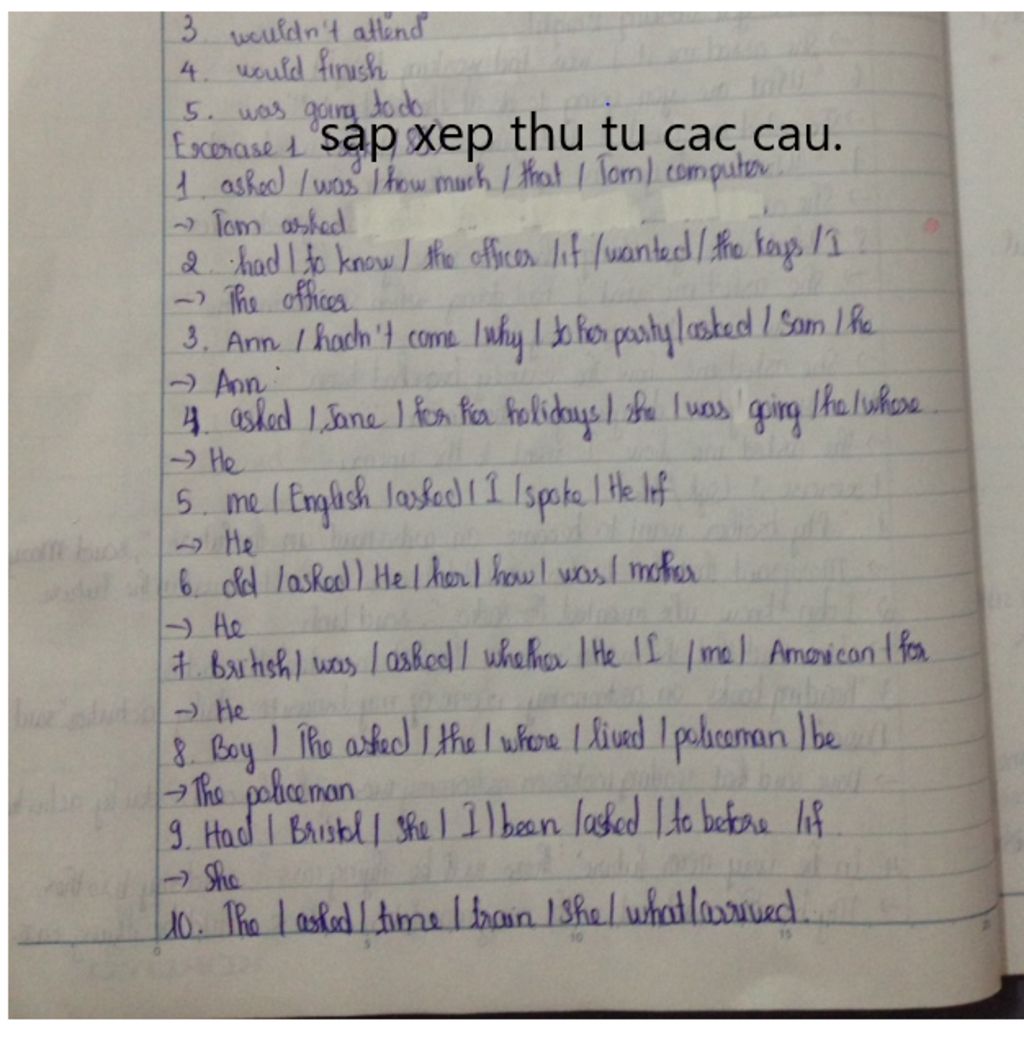 3. wouldn't attend
4. would finish
5. was going to do
Excerase 1
sap xep thu tu cac cau.
1. asked / was / how much / that / Tom / computer.
→ Tom asked
2. had / to know / the officer / if / wanted / the keys / I
→ The officer
3. Ann / hadn't come / why / to her party / asked / Sam / he
→ Ann
4. asked / Jane / for her holidays / she / was going / he / where
→ He
5. me / English / asked / I / spoke / He / if
→ He
6. old / asked / He / her / how / was / mother
→ He
7. British / was / asked / whether / He / I / me / American / for
→ He
8. Boy / The asked / the / where / lived / policeman / be
→ The policeman
9. Had / Bristol / she / I / been / asked / to before / if
→ She
10. The / asked / time / train / she / what / arrived.